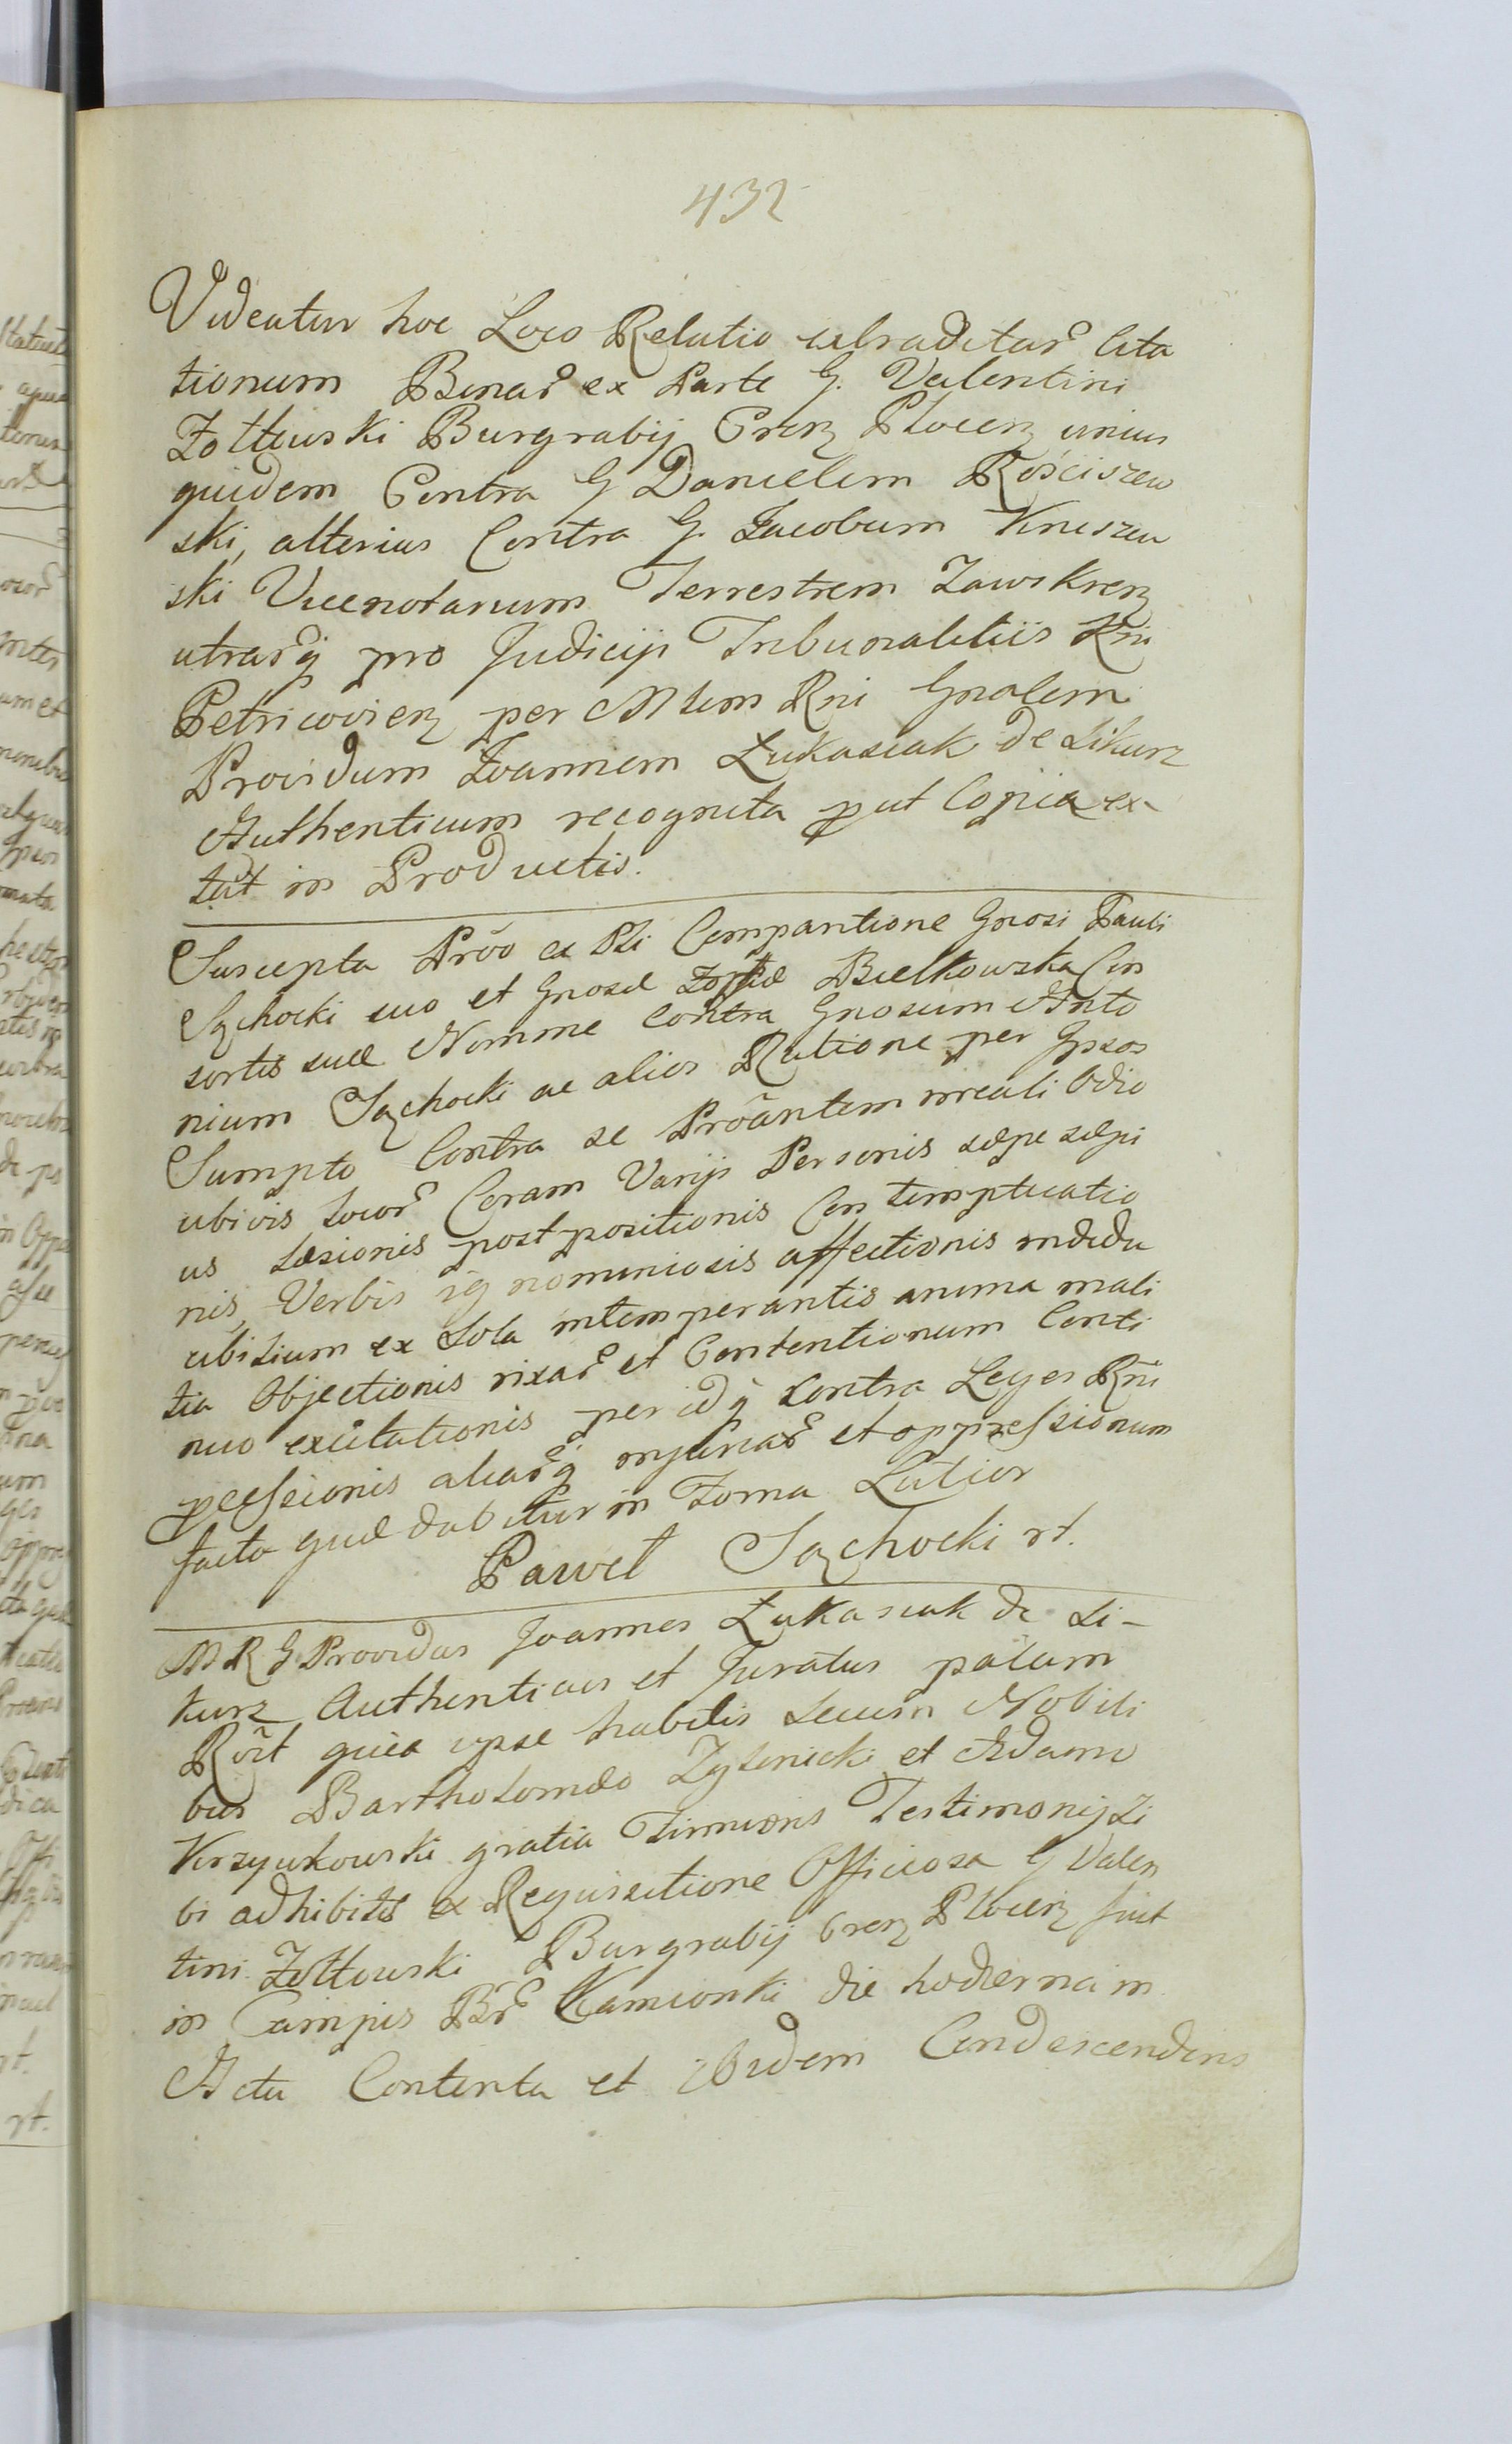 432
Videatur hoc Loco Relatio extraditar Cita
tionum Binar ex Parte G. Valentini
Zołtowski Burgrabij Crenz Plocenz unius
quidem Contra G Danielem Rosciszew
ski, alterius Contra G. Jacobum Kniszew
ski Vicenotarium Terrestrem Zawskrenz
utrarq pro Judicijs Tribunalitiis Rni
Petricovienz per Mlem Rni Gnalem
Providum Joannem Łukasiak de Likurz
Authenticum recognita put Copia ex
tat in Productis.
Suscepta Prõo ex Psi Comparitione Gnosi Pauli
Sączhocki suo et Gnosæ Zophiæ Biełkowska Con
sortis suæ Nomine Contra Gnosum Anto
nium Sączhocki ac alios Ratione per Ipsos
Sumpto Contra se Prõantem irreali Odio
ubivis locor Coram Varijs Personis sæpe sæpi
us Læsionis postpositionis Con temptuatio
nis, Verbis ig nominiosis affectionis indidu
ubilium ex Sola intemperantis anima mali
tia Objectionis rixar et Contentionum Conti
nuo excitationis per idq Contra Leges Rni
peessionis aliarq injuriar et oppressionum
facto quæ dabitur in Forma Latior
Paweł Sączhocki rt.
M R G Providus Joannes Łukasiak de Li-
kurz Authenticus et Juratus palam
Rõt quia ipse habitis secum Nobili
bus Bartholomæo Zglinicki et Adamo
Krzyukowski gratia Firmioris Testimonij Si
bi adhibitis ex Requisitione Officiosa G Valen
tini Zołtowski Burgrabij Crenz Plocenz fuit
in Campis Br Kamionki die hodierna in
Actu Contenta et Ibidem Condescendens